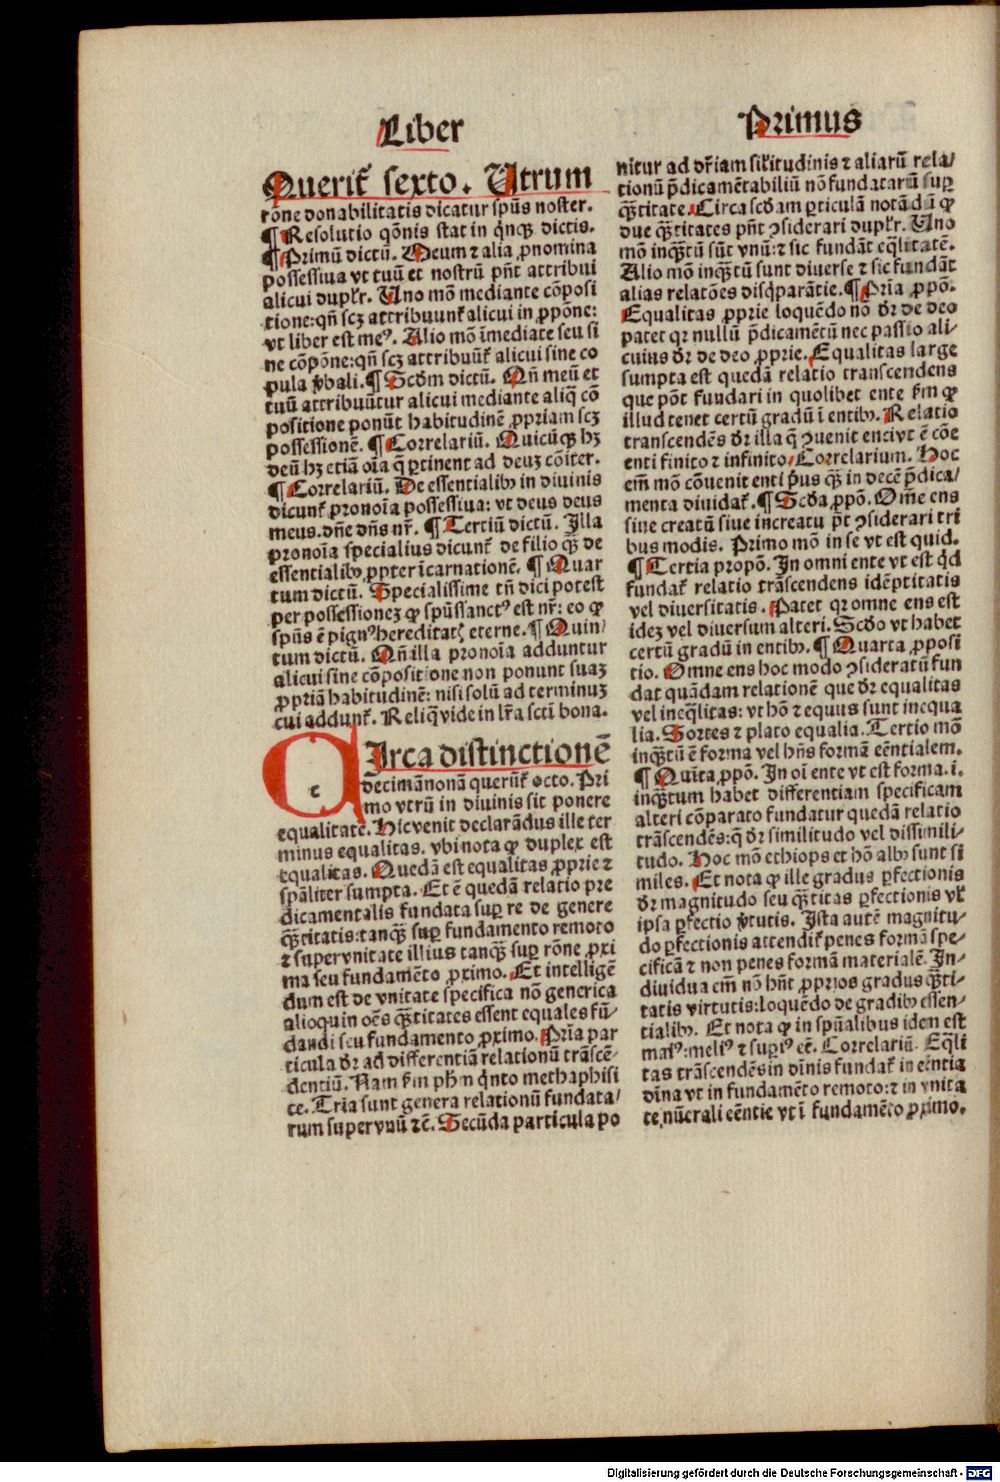 Liber
Primus
Querit᷑ sexto. Utrum
rōne donabilitatis dicatur spūs noster.
¶ Resolutio qōnis stat in q̄nqꝫ dictis.
¶ Primū dictū. Meum ⁊ alia ꝓnomina
possessiua vt tuū et nostrū pn̄t attribui
alicui duplr̄. Uno mō mediante cōposi
tione: qn̄ scꝫ attribuunt᷑ alicui in ꝓpōne:
vt liber est meꝰ. Alio mō īmediate seu si
ne cōpōne: qn̄ scꝫ attribuūt᷑ alicui sine co
pula v̄bali. ¶ Scd̄m dictū. Qn̄ meū et
tuū attribuūtur alicui mediante aliq̄ cō
positione ponūt habitudinē ꝓpriam scꝫ
possessionē. ¶ Correlariū. Quicūqꝫ hꝫ
deū hꝫ etiā oīa q̄ ꝑtinent ad deuꝫ cōiter.
¶ Correlariū. De essentialibꝰ in diuinis
dicunt᷑ pronoīa possessiua: vt deus deus
meus. dn̄e dn̄s nr̄. ¶ Tertiū dictū. Illa
pronoīa specialius dicunt᷑ de filio qꝫ̄ de
essentialibꝰ ꝓpter īcarnationē. ¶ Quar
tum dictū. Specialissime tn̄ dici potest
per possessioneꝫ ꝙ spūssanctꝰ est nr̄: eo ꝙ
spūs ē pignꝰ hereditatꝭ eterne. ¶ Quin/
tum dictū. Qn̄ illa pronoīa adduntur
alicui sine cōpositione non ponunt suaꝫ
ꝓpriā habitudinē: nisi solū ad terminuꝫ
cui addunt᷑. Reliq̄ vide in lr̄a sctī bona.
CIrca distinctionē
c
decimānonā querūt᷑ octo. Pri
mo vtrū in diuinis sit ponere
equalitatē. Hic venit declarādus ille ter
minus equalitas. vbi nota ꝙ duplex est
equalitas. Quedā est equalitas ꝓprie ⁊
spāliter sumpta. Et ē quedā relatio pre
dicamentalis fundata suꝑ re de genere
q̄ꝫtitatis: tanqꝫ̄ suꝑ fundamento remoto
⁊ super vnitate illius tanqꝫ̄ suꝑ rōne ꝓxi
ma seu fundamēto ꝓximo. Et intelligē
dum est de vnitate specifica nō generica
alioquin oēs q̄ꝫtitates essent equales fū-
dandi seu fundamento ꝓximo. Pria par
ticula dr̄ ad differentiā relationū trāscē-
dentiū. Nam fm̄ ph̄m q̄nto methaphisi
ce. Tria sunt genera relationū fundata/
rum super vnū ⁊c̄. Secūda particula po
nitur ad dr̄iam sil̄itudinis ⁊ aliarū rela/
tionū p̄dicamētabiliū nō fundatarū suꝑ
q̄ꝫtitate. Circa scd̄am ꝑticulā notādū ꝙ
due q̄ꝫtitates pn̄t ꝯsiderari duplr̄. Uno
mō inqꝫ̄tū sūt vnū: ⁊ sic fundāt eq̄litatē.
Alio mō inqꝫ̄tū sunt diuerse ⁊ sic fundāt
alias relatōes disq̄parātie. ¶ Pria ꝓpō.
Equalitas ꝓprie loquēdo nō dr̄ de deo
patet qr nullū p̄dicamētū nec passio ali-
cuius dr̄ de deo ꝓprie. Equalitas large
sumpta est quedā relatio transcendens
que pōt fundari in quolibet ente fm̄ ꝙ
illud tenet certū gradū ī entibꝰ. Relatio
transcendēs dr̄ illa q̄ ꝯuenit enti vt ē cōe
enti finito ⁊ infinito. Correlarium. Hoc
em̄ mō cōuenit enti p̄us qꝫ̄ in decē p̄dica/
menta diuidat᷑. ¶ Scd̄a ꝓpō. Om̄e ens
siue creatū siue increatū pt̄ ꝯsiderari tri
bus modis. Primo mō in se vt est quid.
¶ Tertia propō. In omni ente vt est qd̄
fundat᷑ relatio trāscendens idēptitatis
vel diuersitatis. Patet qr omne ens est
ideꝫ vel diuersum alteri. Scd̄o vt habet
certū gradū in entibꝰ. ¶ Quarta ꝓposi
tio. Omne ens hoc modo ꝯsideratū fun
dat quādam relationē que dr̄ equalitas
vel ineq̄litas: vt hō ⁊ equus sunt inequa
lia. Sortes ⁊ plato equalia. Tertio mō
inqꝫ̄tū ē forma vel hn̄s formā eēntialem.
¶ Quīta ꝓpō. In oī ente vt est forma. i.
inqꝫ̄tum habet differentiam specificam
alteri cōparato fundatur quedā relatio
trāscendēs: q̄ dr̄ similitudo vel dissimili-
tudo. Hoc mō ethiops et hō albꝰ sunt si
miles. Et nota ꝙ ille gradus ꝑfectionis
dr̄ magnitudo seu q̄ꝫtitas ꝑfectionis vl᷑
ipsa ꝑfectio v̄tutis. Ista autē magnitu-
do ꝑfectionis attendit᷑ penes formā spe-
cificā ⁊ non penes formā materialē. In-
diuidua em̄ nō hn̄t ꝓprios gradus q̄ꝫti-
tatis virtutis: loquēdo de gradibꝰ essen-
tialibꝰ. Et nota ꝙ in spūalibus idem est
maiꝰ: meliꝰ ⁊ suꝑiꝰ eē. Correlariū. Eq̄li
tas trāscendēs in dīnis fundat᷑ in eēntia
dīna vt in fundamēto remoto: ⁊ in vnita
te nūerali eēntie vt ī fundamēto ꝓximo.
Digitalisierung gefördert durch die Deutsche Forschungsgemeinschaft - DFG